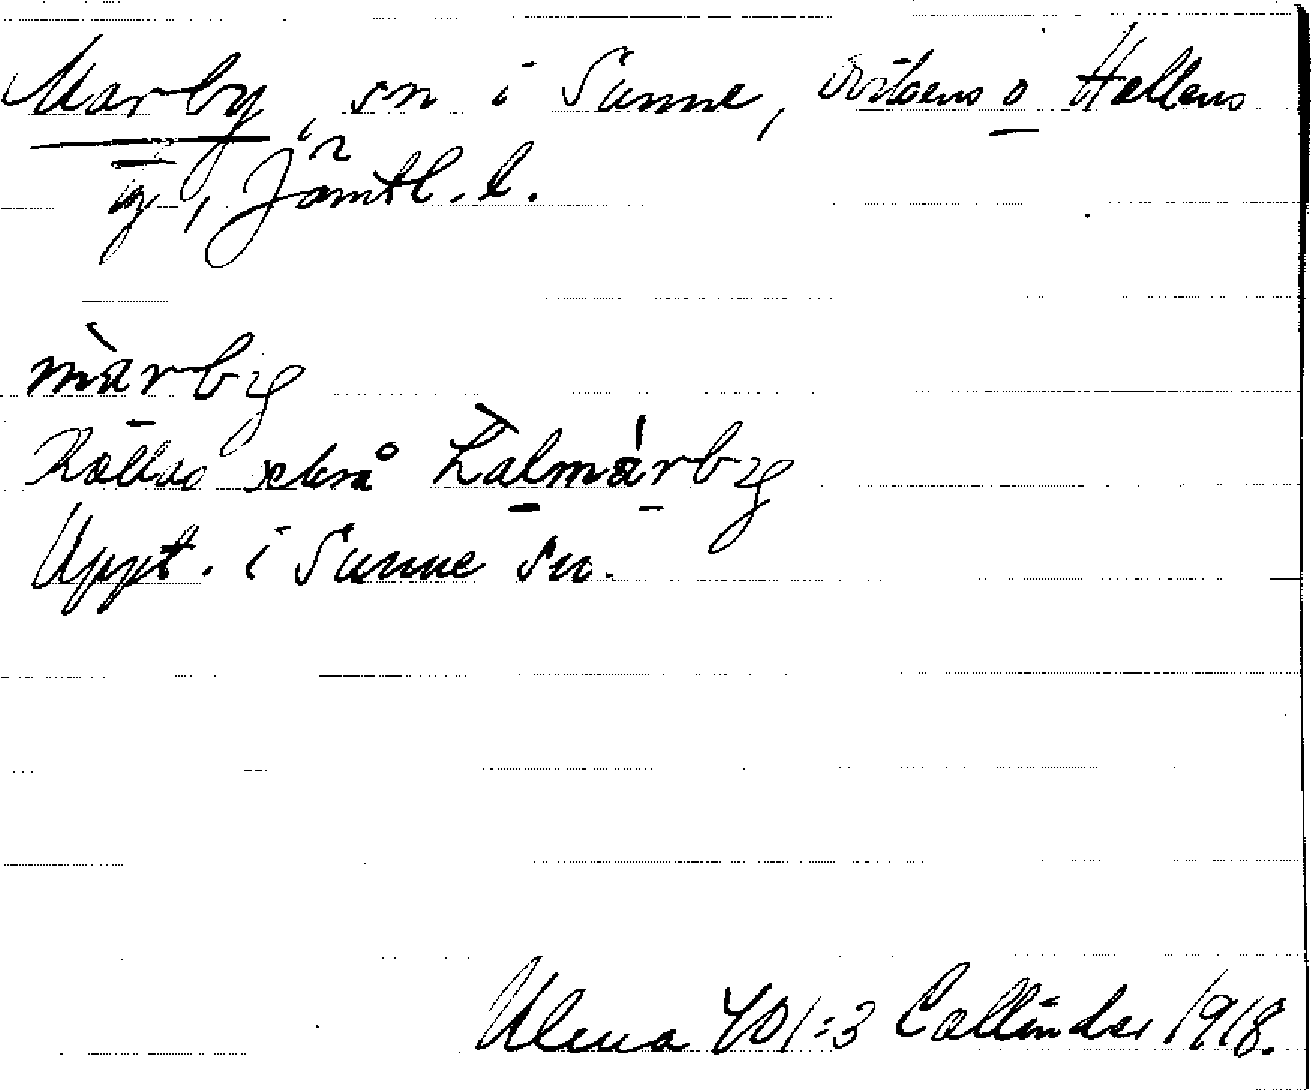 Marby, sn i Sunne, Ovikens o Hallens
tg, Jämtl. l.
màrby
Kallas också Kàlmárby
Uppt. i Sunne sn.
Ulma 401:3 Collinder 1918.